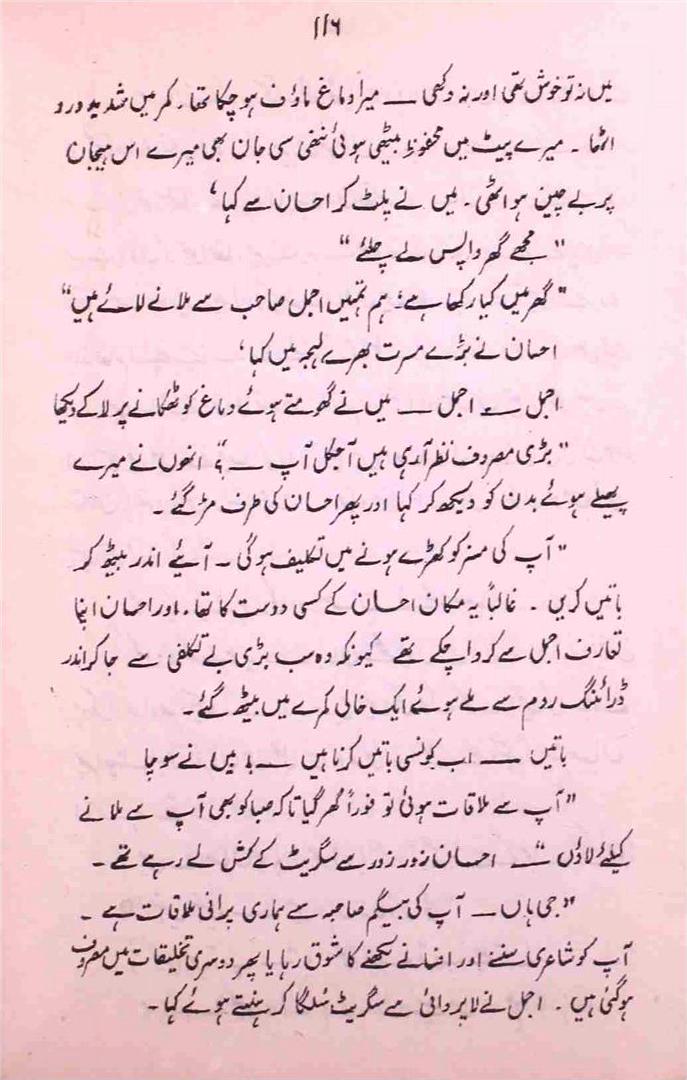 ۱۱۶
میں نہ تو خوش تھی اور نہ دکھی — میرا دماغ ماؤف ہو چکا تھا۔ کمر میں شدید درد
اٹھا۔ میرے پیٹ میں محفوظ بیٹھی ہوئی ننھی سی جان بھی میرے اس ہیجان
پر بے چین ہو اٹھی۔ میں نے پلٹ کر احسان سے کہا،
"مجھے گھر واپس لے چلئے"
"گھر میں کیا رکھا ہے؛ ہم تمہیں اجمل صاحب سے ملانے لائے ہیں"
احسان نے بڑے مسرت بھرے لہجہ میں کہا،
اجمل — اجمل — میں نے گھومتے ہوئے دماغ کو ٹھکانے پر لا کے دیکھا
"بڑی مصروف نظر آرہی ہیں آجکل آپ —؟" انھوں نے میرے
پھیلے ہوئے بدن کو دیکھ کر کہا اور پھر احسان کی طرف مڑ گئے۔
"آپ کی مسز کو کھڑے ہونے میں تکلیف ہوگی۔ آیئے اندر بیٹھ کر
باتیں کریں۔ غالباً یہ مکان احسان کے کسی دوست کا تھا۔ اور احسان اپنا
تعارف اجمل سے کروا چکے تھے کیونکہ وہ سب بڑی بے تکلفی سے جا کر اندر
ڈرائنگ روم سے ملے ہوئے ایک خالی کمرے میں بیٹھ گئے۔
باتیں — اب کونسی باتیں کرنا ہیں —؟ میں نے سوچا
"آپ سے ملاقات ہوئی تو فوراً گھر گیا تاکہ صبا کو بھی آپ سے ملانے
کیلئے لاؤں"— احسان زور زور سے سگریٹ کے کش لے رہے تھے۔
"جی ہاں — آپ کی بیگم صاحبہ سے ہماری پرانی ملاقات ہے۔
آپ کو شاعری سننے اور افسانے لکھنے کا شوق رہا یا پھر دوسری تخلیقات میں مصروف
ہوگئی ہیں۔ اجمل نے لاپروائی سے سگریٹ سُلگا کر ہنستے ہوئے کہا۔